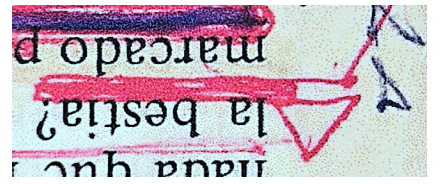 nada que
la bestia?
marcado p